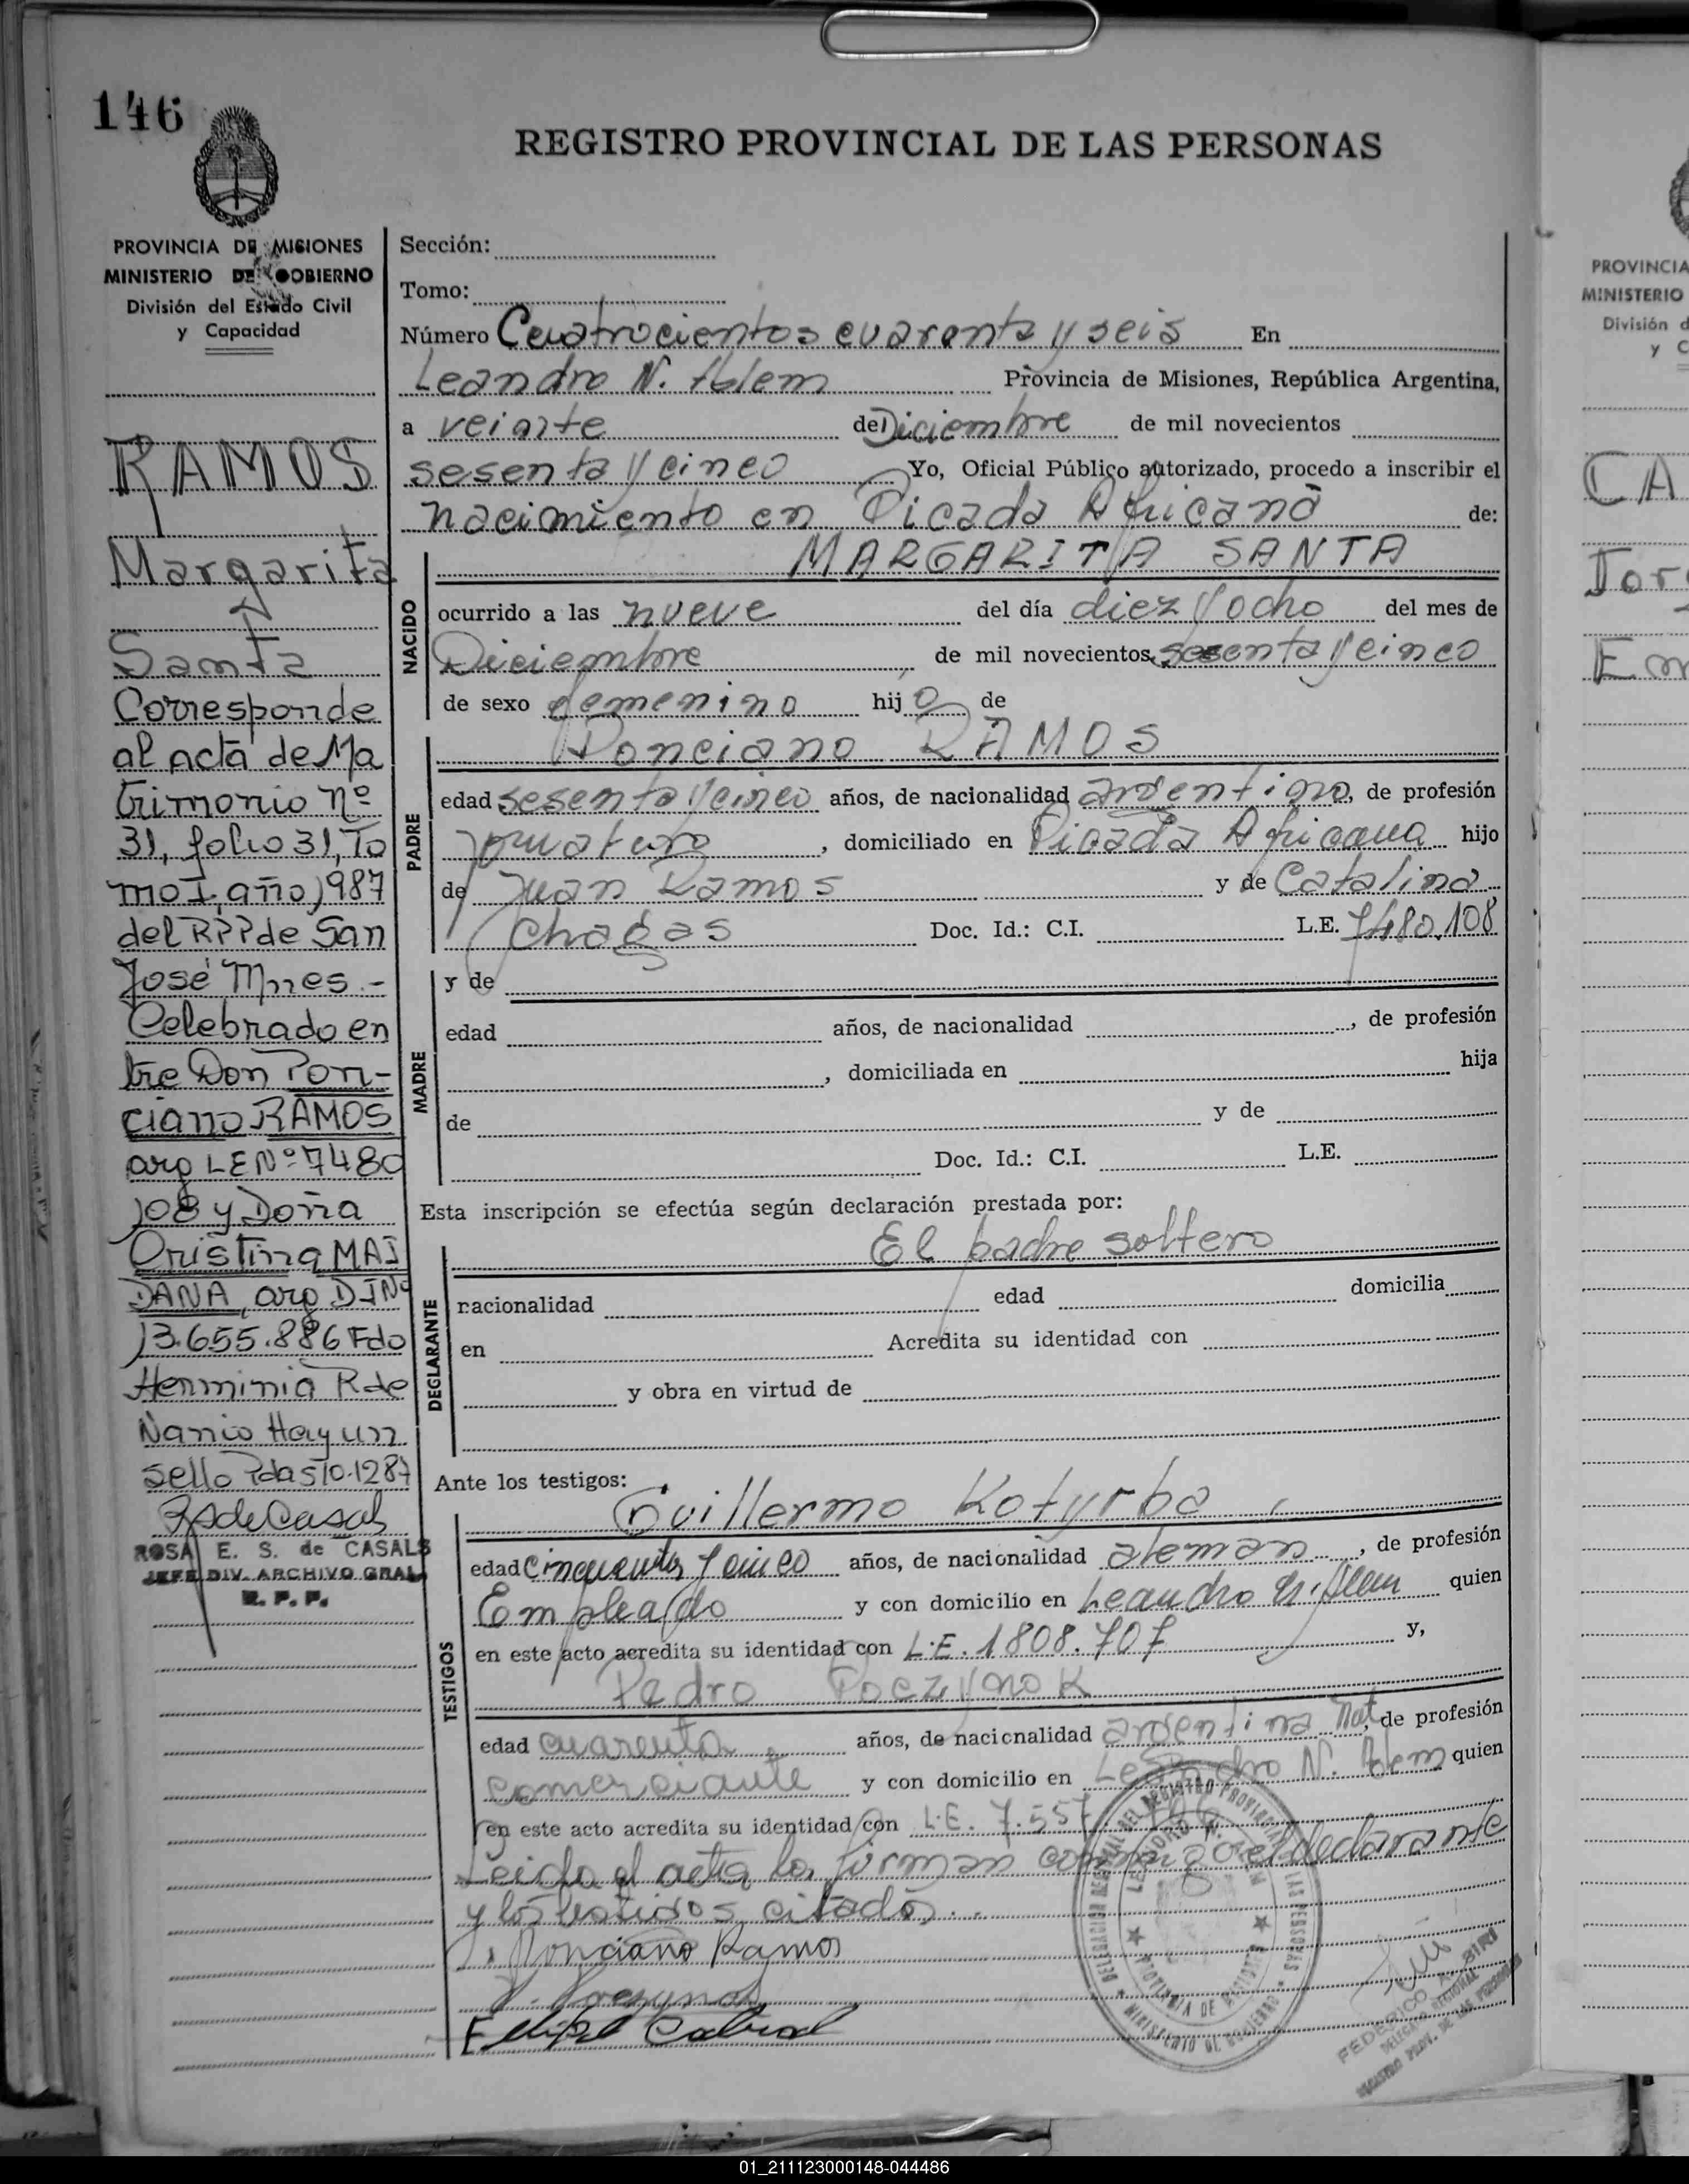 146
REGISTRO PROVINCIAL DE LAS PERSONAS
PROVINCIA DE MISIONES
MINISTERIO DE GOBIERNO
División del Estado Civil
y Capacidad
RAMOS
Margarita
Santa
Corresponde
al acta de Ma
trimonio nº
31, folio 31, To
mo I, año 1987
del RPP de San
José Mnes.-
Celebrado en
tre Don Pon-
ciano RAMOS
arg LE Nº 7480
108 y Doña
Cristina MAI
DANA, arg DJNº
13.655.886 Fdo
Herminia R de
Hay un
sello Pdas 10-1287
RSdeCasals
ROSA E. S. de CASALS
JEFE DIV. ARCHIVO GRAL.
R. P. P.
Sección:
Tomo:
Número Cuatrocientos cuarenta y seis En
Leandro N. Alem Provincia de Misiones, República Argentina,
a veinte de Diciembre de mil novecientos
sesenta y cinco Yo, Oficial Público autorizado, procedo a inscribir el
nacimiento en Picada Africana de:
MARGARITA SANTA
NACIDO
ocurrido a las nueve del día diez y ocho del mes de
Diciembre, de mil novecientos sesenta y cinco
de sexo femenino hija de
Ponciano RAMOS
PADRE
edad sesenta y cinco años, de nacionalidad argentino, de profesión
jornalero, domiciliado en Picada Africana hijo
de Juan Ramos y de Catalina
Chagas Doc. Id.: C.I. L.E. 7480.108
y de
MADRE
edad años, de nacionalidad , de profesión
, domiciliada en hija
de y de
Doc. Id.: C.I. L.E.
Esta inscripción se efectúa según declaración prestada por:
El padre soltero
DECLARANTE
nacionalidad edad domicilia
en Acredita su identidad con
y obra en virtud de
Ante los testigos:
Guillermo Kotyrba,
TESTIGOS
edad cincuenta y cinco años, de nacionalidad aleman, de profesión
Empleado y con domicilio en Leandro N. Alem quien
en este acto acredita su identidad con L.E. 1808.707 y,
Pedro Poczynok
edad cuarenta años, de nacionalidad argentina Nat, de profesión
comerciante y con domicilio en Leandro N. Alem quien
en este acto acredita su identidad con L.E. 7.557.
Leida el acta la firman conmigo el declarante
y los testigos citados.
Ponciano Ramos
P. Poczynok
Felipe Cabral
DELEGACION REGIONAL DEL REGISTRO PROVINCIAL DE LAS PERSONAS
LEANDRO N. ALEM
PROVINCIA DE MISIONES
MINISTERIO DE GOBIERNO
FEDERICO A. BIRI
DELEGADO REGIONAL
REGISTRO PROV. DE LAS PERSONAS
PROVINCIA
MINISTERIO
División d
y C
CA
Jor
Em
01_211123000148-044486